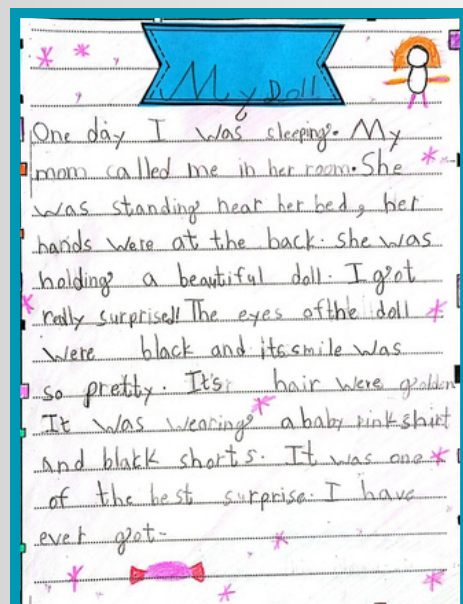 My Doll
One day I was sleeping. My
mom called me in her room. She
was standing near her bed, her
hands were at the back. She was
holding a beautiful doll. I got
really surprised! The eyes of the doll
were black and its smile was
so pretty. It's hair were golden
It was wearing a baby pink shirt
and black shorts. It was one
of the best surprise. I have
ever got.